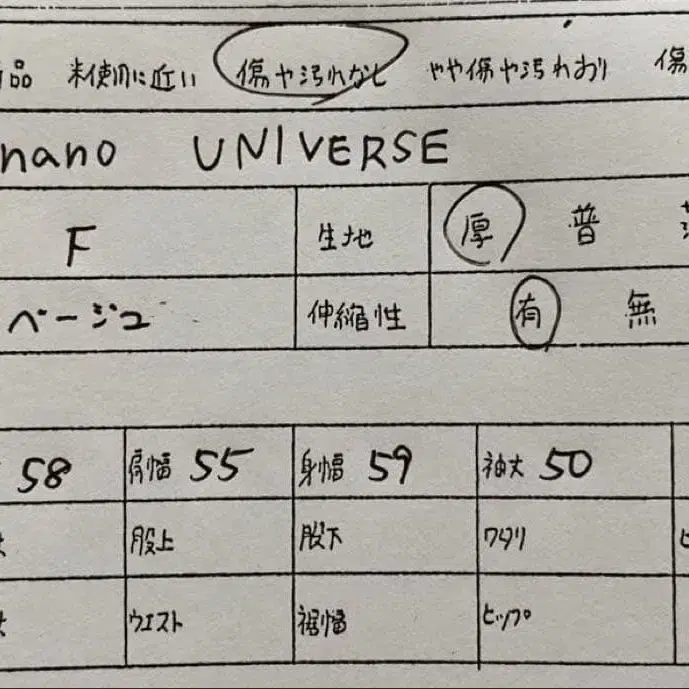 品 未使用に近い 傷や汚れなし やや傷や汚れあり 傷
nano UNIVERSE
F 生地 厚 普
ベージュ 伸縮性 有 無
58 肩幅 55 身幅 59 袖丈 50
股上 股下 ワタリ
ウエスト 裾幅 ヒップ